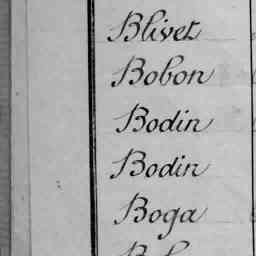 Blivet
Bobon
Bodin
Bodin
Boga